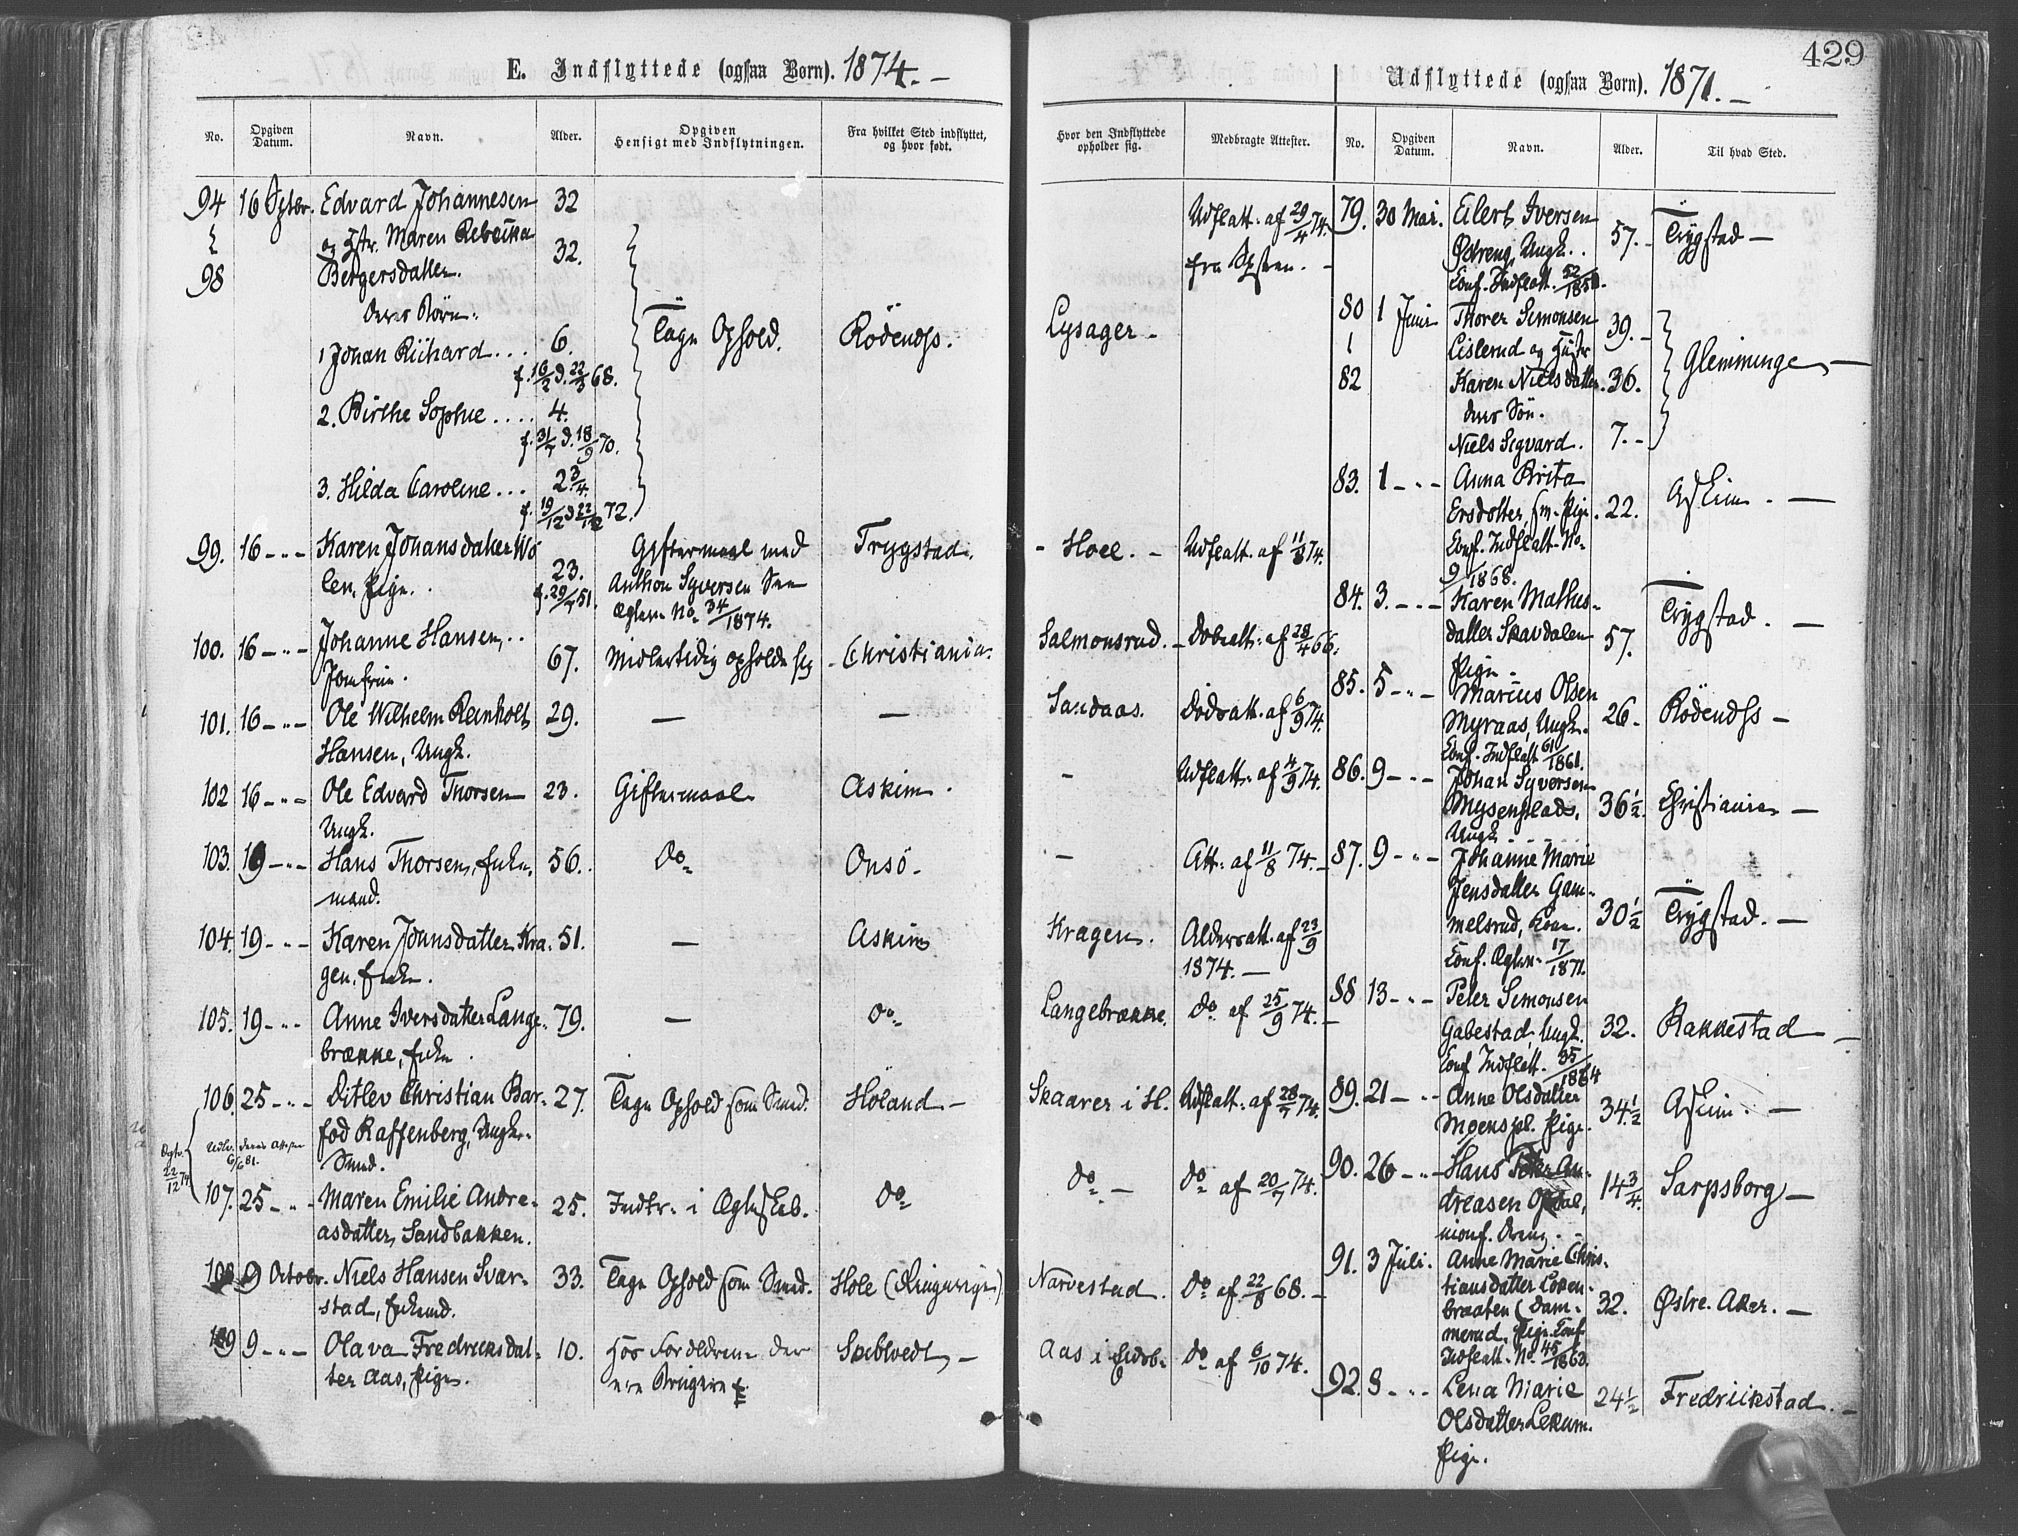 429
E. Indflyttede (ogsaa Børn). 1874.
No.
Opgiven Datum.
Navn.
Alder.
Opgiven Hensigt med Indflytningen.
Fra hvilket Sted indflyttet, og hvor født.
Hvor den Indflyttede opholder sig.
Medbragte Attester.
94 16 Septbr. Edvard Johannesen 32 Udflatt. af 29/4 74.
og Hstr. Maren Rebecka 32. fra
98 Bergersdatter.
deres Børn.
1 Johan Richard.... 6. Tage Ophold. Rödenæs. Lysager.
f. 16/2 d. 22/3 68.
2. Birthe Sophie.... 4.
f. 31/7 d. 18/9 70.
3. Hilda Caroline... 2 3/4.
f. 19/12 d 22/12 72.
99. 16 -"- Karen Johansdatter Mo- 23. Giftermaal med Trygstad. Hoel. Udflatt. af 11/8 74.
len, Pige. f. 29/7 51. Anthon Syversen See
Ægtev. No. 34/1874.
100. 16 -"- Johanne Hansen, 67. Midlertidig opholde sig Christiania. Salmonsrud. Dobsatt. af 28/4 66.
Jomfru.
101. 16 -"- Ole Wilhelm Reinholt 29. — — Sandaas. Dödsatt. af 6/9 74.
Hansen, Ungk.
102 16 -"- Ole Edvard Thorsen 23. Giftermaal Askim. - Udflatt. af 4/9 74.
Ungk.
103. 19 -"- Hans Thorsen, Enke- 56. Do Onsö. - Att. af 11/8 74.
mand.
104. 19 -"- Karen Johnsdatter Kra- 51. — Askim Kragen. Aldersatt. af 23/9
gen, Enke. 1874.
105. 19 -"- Anne Iversdatter Lange- 79. — Do Langebrække. Do af 25/9 74.
brække, Enke
106. 25 -"- Ditlev Christian Bar- 27. Tage Ophold som Smed. Höland Skaarer i H. Udflatt. af 28/7 74.
fod Raffenberg, Ungk.
Smed.
Udlv. deres Attester 6/6 81.
Ægtv. 22/12 74
107. 25 -"- Maren Emilie Andre- 25. Indtr. i Ægteskab. Do Do Do af 20/7 74.
asdatter Sandbakken.
108 9 Octobr. Niels Hansen Svar- 33. Tage Ophold som Smed. Hole (Ringerige) Narvestad. Do af 22/8 68.
stad, Enkemd.
109 9 -"- Olava Fredriksdat- 10. Hos Forældrene der Skibtvedt Aas i Eidsb. Do af 6/10 74.
ter Aas, Pige.
Udflyttede (ogsaa Børn). 1871.
No.
Opgiven Datum.
Navn.
Alder.
Til hvad Sted.
79. 30 Mai. Eilert Iversen 57. Trygstad
Østreng, Ungk.
Conf. Indflatt.
80 1 Juni Thorer Simonsen 39. Glemminge
Lislerud og Hustr
82 Karen Nielsdatter. 36.
deres Sön.
Niels Sigvard. 7.
83. 1 -"- Anna Brita 22. Askim.
Ersdotter, sv. Pige.
Conf. Indflatt. No.
9/1868.
84. 3. -"- Karen Mathis- 57. Trygstad.
datter Skavdalen
Pige.
85. 5 -"- Marius Olsen 26 Rödenæs
Myraas, Ungk.
Conf. Indflatt 61/1861.
86. 9 -"- Johan Syversen 36 1/2. Christiania
Mysenplads,
Ungk.
87. 9 -"- Johanne Marie 30 1/2 Trygstad.
Jensdatter Gam-
melsrud, Kone.
Conf. Ægtev. 17/1871.
88 13 -"- Peter Simonsen 32. Rakkestad
Gabestad, Ungk.
Conf Indflatt. 35/1864
89. 21 -"- Anne Olsdatter 34 1/2 Askim.
Moenspl. Pige.
90. 26 -"- Hans Peter An- 14 3/4. Sarpsborg
dreasen Opdal,
uconf. Dreng.
91. 3 Juli. Anne Marie Chris- 32. Østre Aker.
tiansdatter Loken-
braaten (Dam-
merud, Pige. Conf
Indflatt. No. 45/1863.
92. 8 -"- Lena Marie 24 1/2 Fredrikstad.
Olsdatter Lekum.
Pige.